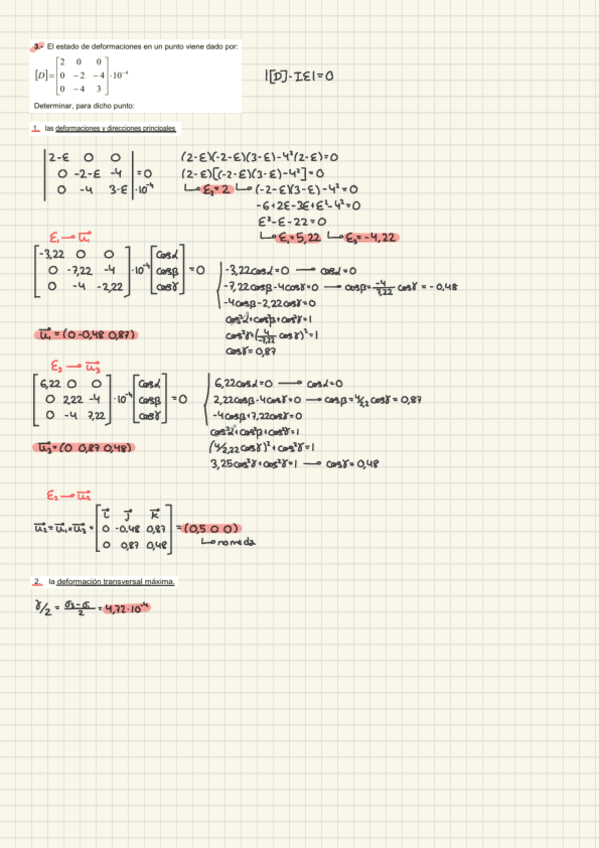 3.- El estado de deformaciones en un punto viene dado por:
[D] = [2 0 0; 0 -2 -4; 0 -4 3] ·10⁻⁴
|[D]-IƐ|=0
Determinar, para dicho punto:
1. las deformaciones y direcciones principales
|2-Ɛ 0 0; 0 -2-Ɛ -4; 0 -4 3-Ɛ| ·10⁻⁴ =0
(2-Ɛ)(-2-Ɛ)(3-Ɛ)-4²(2-Ɛ)=0
(2-Ɛ)[(-2-Ɛ)(3-Ɛ)-4²]=0
Ɛ₂=2 (-2-Ɛ)(3-Ɛ)-4²=0
-6+2Ɛ-3Ɛ+Ɛ²-4²=0
Ɛ²-Ɛ-22=0
Ɛ₁=5,22 Ɛ₃=-4,22
Ɛ₁→u₁
[-3,22 0 0; 0 -7,22 -4; 0 -4 -2,22] ·10⁻⁴ [cosα; cosβ; cosγ] =0
-3,22cosα=0 → cosα=0
-7,22cosβ-4cosγ=0 → cosβ=-4/7,22 cosγ=-0,48
-4cosβ-2,22cosγ=0
cos²α+cos²β+cos²γ=1
cos²γ+(4/-7,22 cosγ)²=1
cosγ=0,87
u₁=(0 -0,48 0,87)
Ɛ₃→u₃
[6,22 0 0; 0 2,22 -4; 0 -4 7,22] ·10⁻⁴ [cosα; cosβ; cosγ] =0
6,22cosα=0 → cosα=0
2,22cosβ-4cosγ=0 → cosβ=4/2,2 cosγ=0,87
-4cosβ+7,22cosγ=0
cos²α+cos²β+cos²γ=1
(4/2,22 cosγ)²+cos²γ=1
3,25cos²γ+cos²γ=1 → cosγ=0,48
u₃=(0 0,87 0,48)
Ɛ₂→u₂
u₂=u₁×u₃= [i j k; 0 -0,48 0,87; 0 0,87 0,48] =(0,5 0 0)
no me da
2. la deformación transversal máxima.
γ/2 = (σ₃-σ₁)/2 =4,72·10⁻⁴